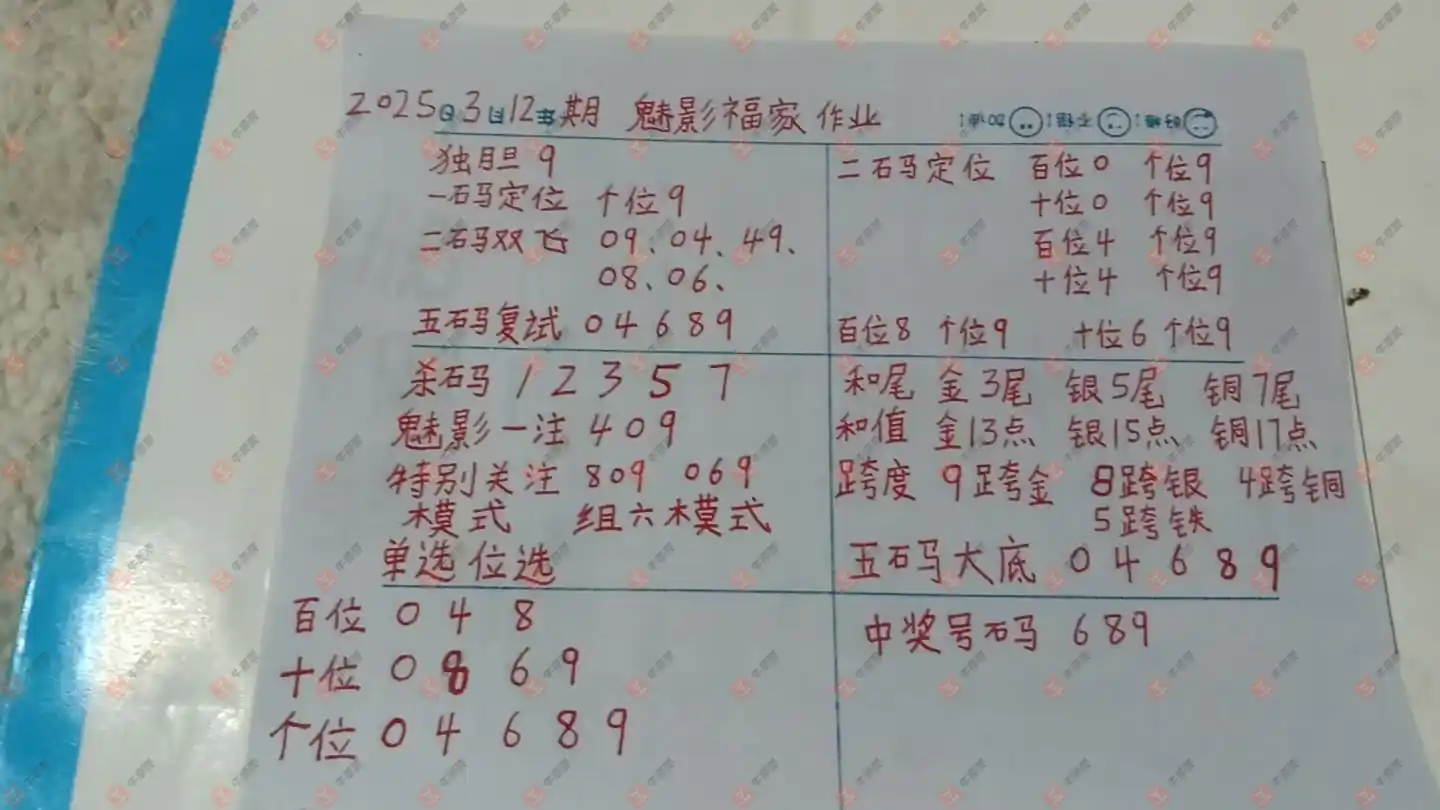 2025 3 12 期 魅影福家 作业
独胆 9
一码定位 个位9
二码双飞 09、04、49、
08、06、
五码复试 0 4 6 8 9
二码定位 百位0 个位9
十位0 个位9
百位4 个位9
十位4 个位9
百位8 个位9 十位6 个位9
杀码 1 2 3 5 7
魅影一注 409
特别关注 809 069
模式 组六模式
单选位选
和尾 金3尾 银5尾 铜7尾
和值 金13点 银15点 铜17点
跨度 9跨金 8跨银 4跨铜
5跨铁
五码大底 0 4 6 8 9
百位 0 4 8
十位 0 8 6 9
个位 0 4 6 8 9
中奖号码 689